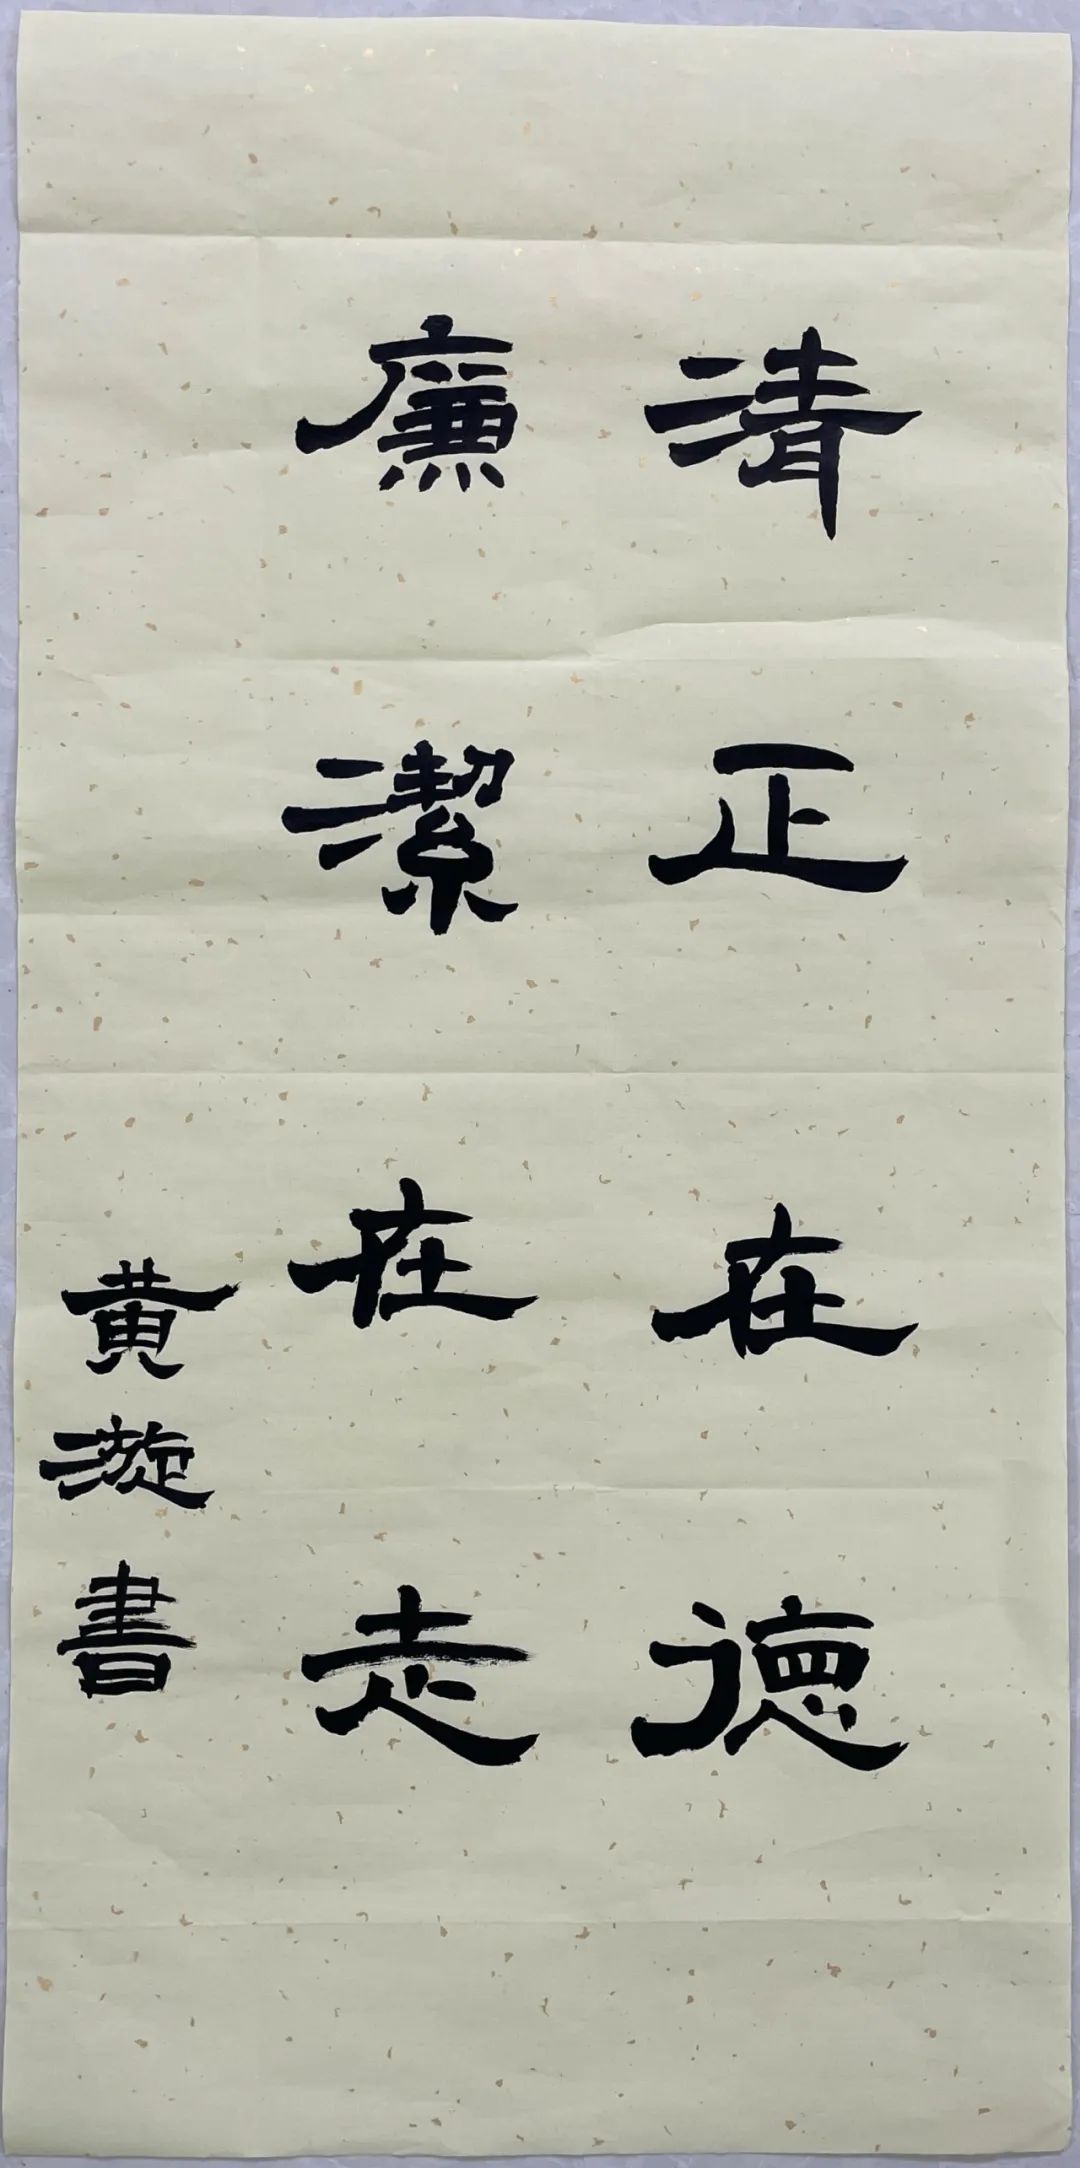 清正在德
廉潔在志
黄漩書